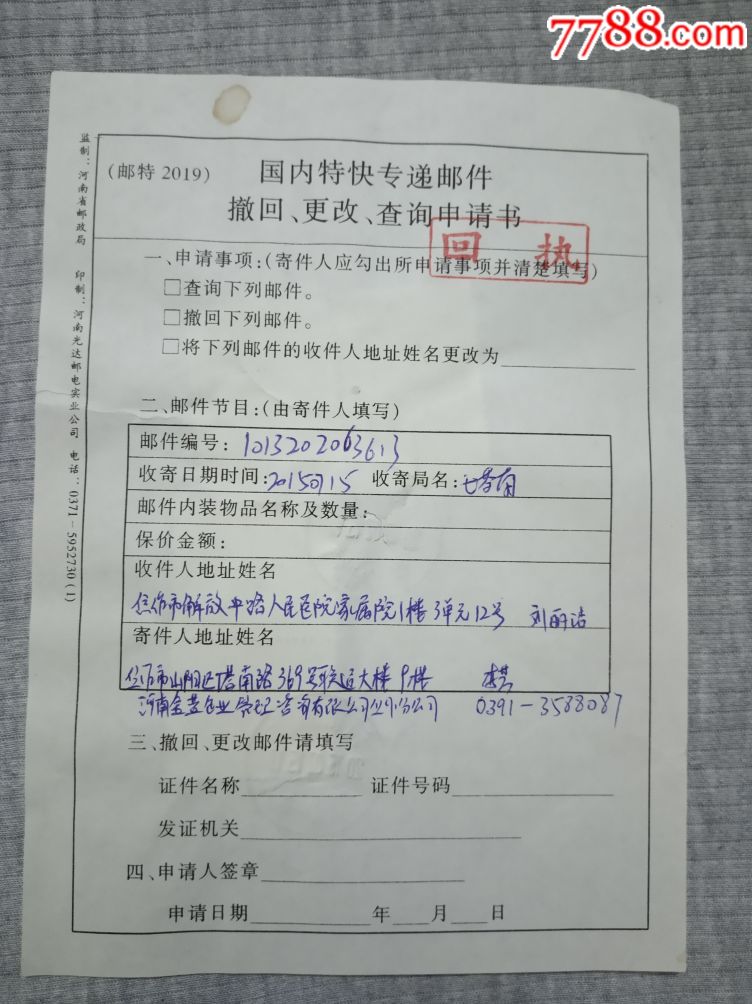 7788.com
(邮特 2019)
国内特快专递邮件
撤回、更改、查询申请书
回执
一、申请事项:(寄件人应勾出所申请事项并清楚填写)
□查询下列邮件。
□撤回下列邮件。
□将下列邮件的收件人地址姓名更改为
二、邮件节目:(由寄件人填写)
邮件编号: 1013202063613
收寄日期时间: 20150715 收寄局名:
邮件内装物品名称及数量:
保价金额:
收件人地址姓名
焦作市解放中路人民医院家属院1楼3单元12号 刘丽洁
寄件人地址姓名
焦作市山阳区塔南路369号联运大楼9楼
河南金 企业管理咨询有限公司 分公司 0391-3588087
三、撤回、更改邮件请填写
证件名称 证件号码
发证机关
四、申请人签章
申请日期 年 月 日
监制:河南省邮政局 印制:河南光达邮电实业公司 电话:0371-5952730(1)